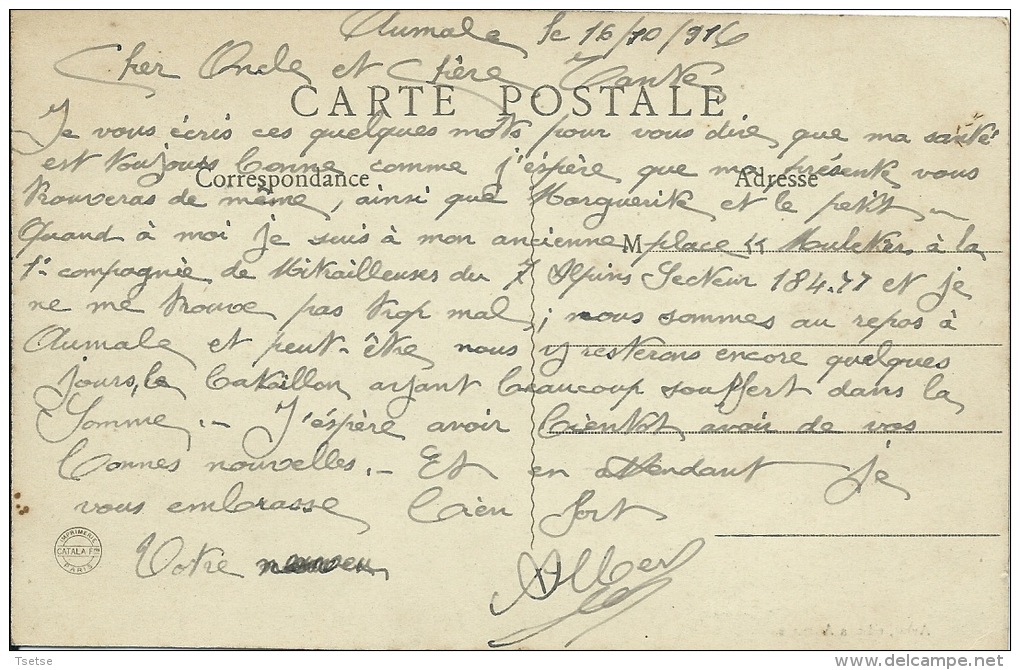 Aumale le 16/10/916
Cher Oncle et Chère Tante,
CARTE POSTALE
Je vous écris ces quelques mots pour vous dire, que ma santé
est toujours bonne comme j'espère que ma présente vous
Correspondance
Adresse
trouveras de même, ainsi que Marguerite et le petit.
Quand à moi je suis à mon ancienne place à la
M
1e compagnie de Mitrailleuses du 7 Alpins Secteur 184.77 et je
ne me trouve pas trop mal, ; nous sommes au repos à
Aumale et peut-être nous y resterons encore quelques
jours, le bataillon ayant beaucoup souffert dans la
Somme. - J'éspère avoir bientôt avoir de vos
bonnes nouvelles. - Et en attendant je
vous embrasse bien fort
Votre neveu
Albert
IMPRIMERIE
CATALA Fres
PARIS
Tsetse
delcampe.net